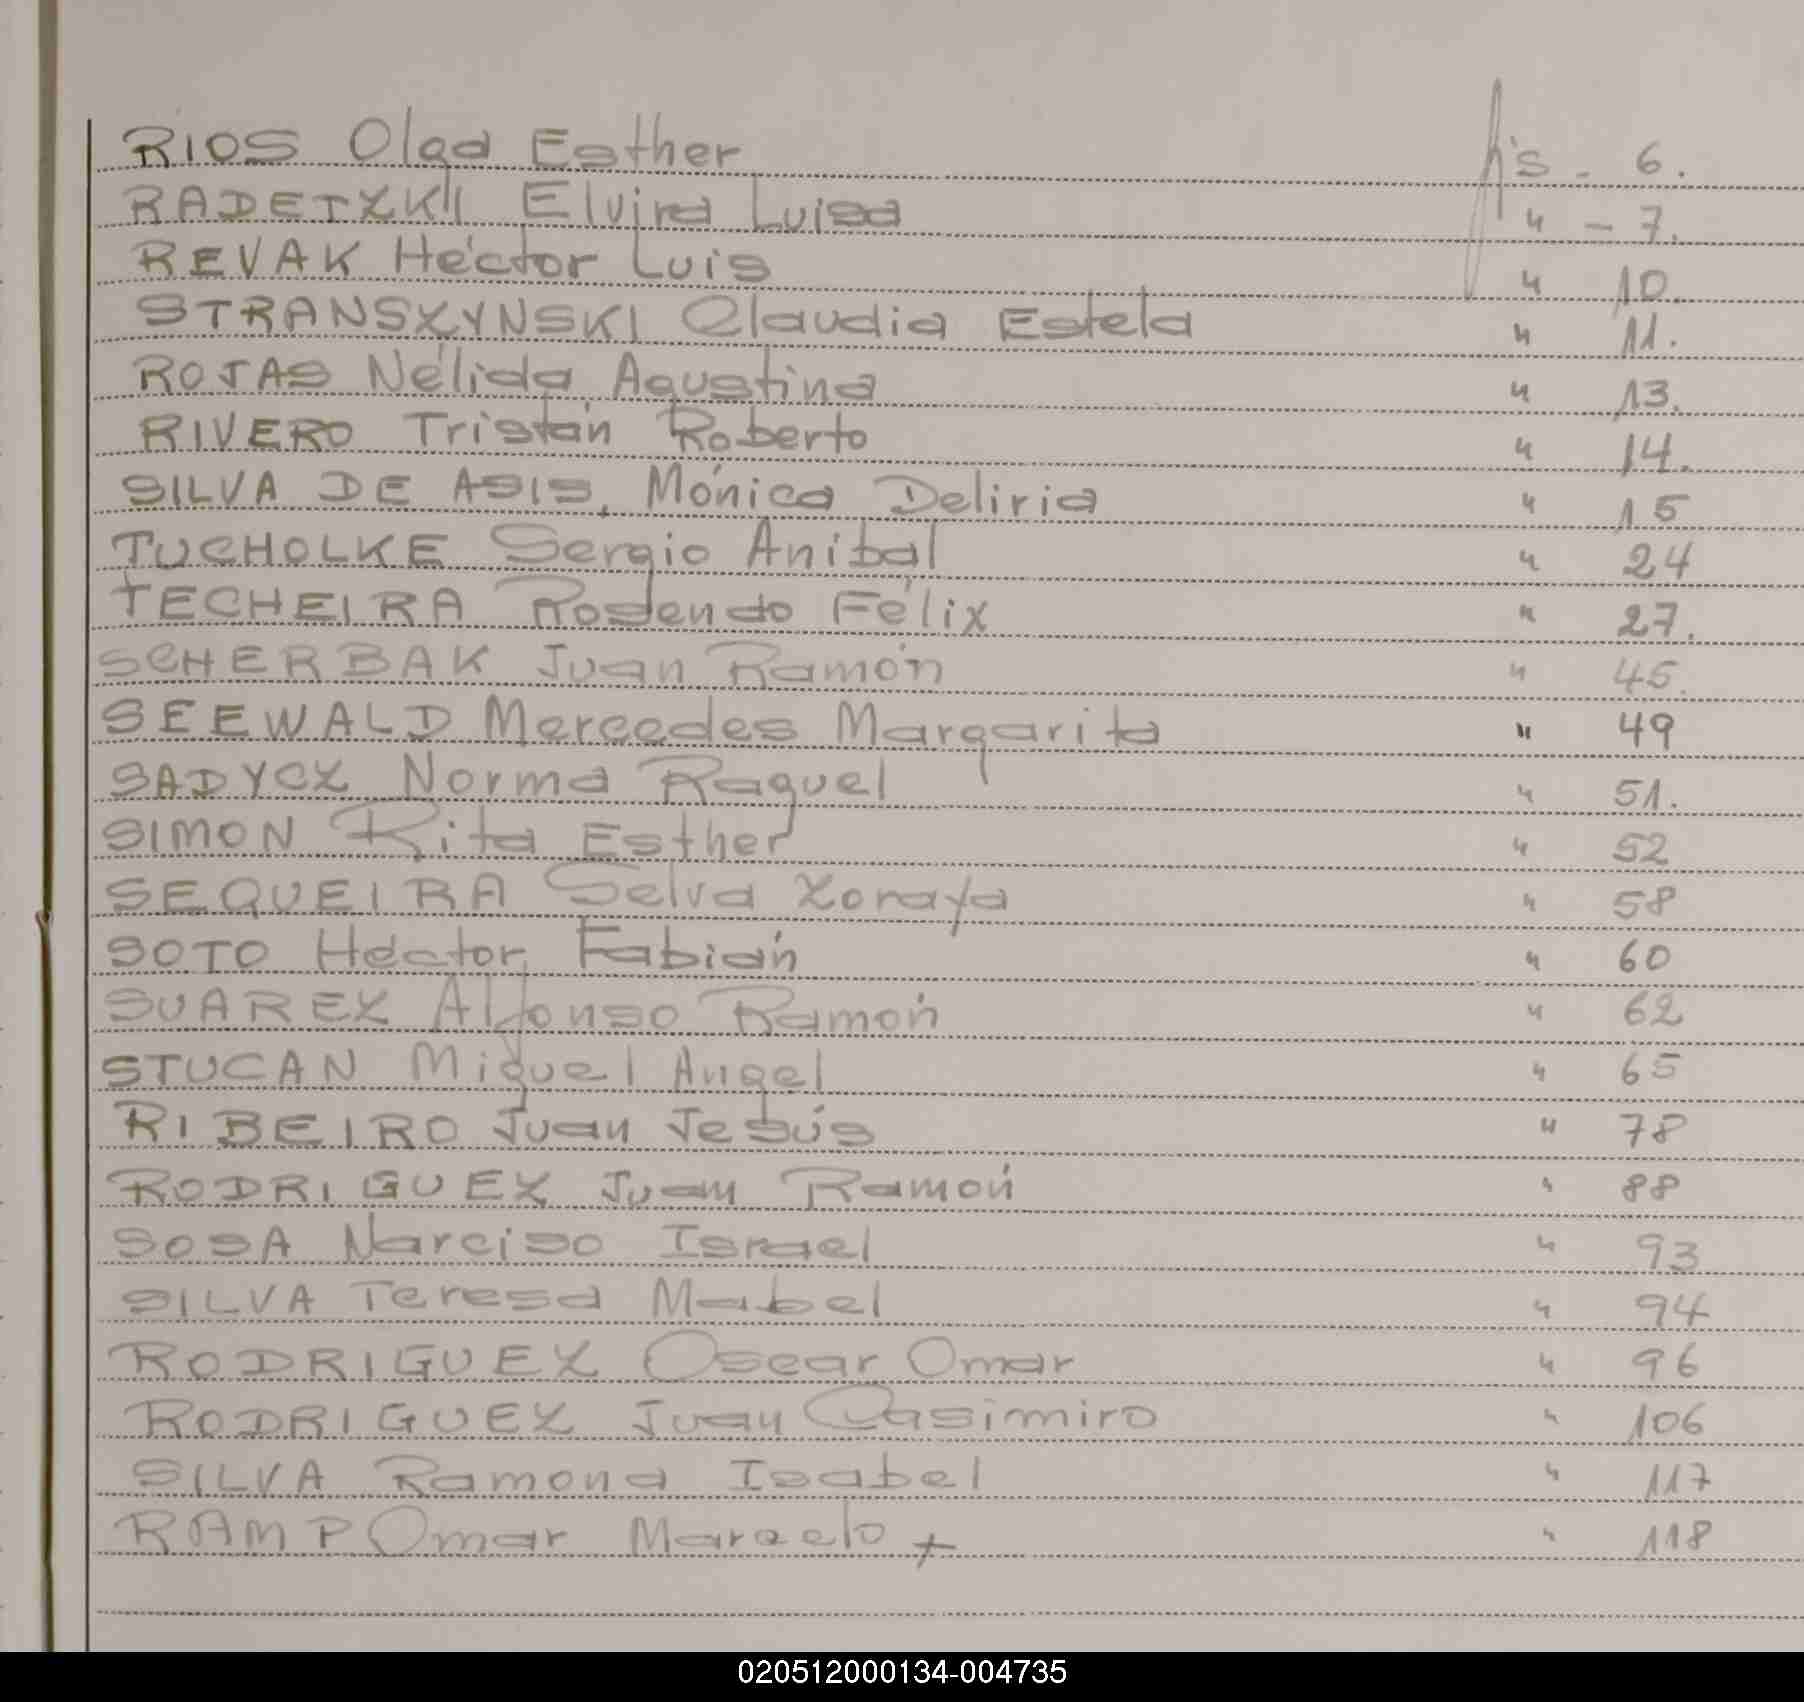 RIOS Olga Esther fs - 6.
RADETZKII Elvira Luisa " - 7.
REVAK Héctor Luis " 10.
STRANSZYNSKI Claudia Estela " 11.
ROJAS Nélida Agustina " 13.
RIVERO Tristán Roberto " 14.
SILVA DE ASIS, Mónica Deliria " 15
TUCHOLKE Sergio Anibal " 24
TECHEIRA Rosendo Félix " 27.
SCHERBAK Juan Ramón " 45.
SEEWALD Mercedes Margarita " 49
SADYCZ Norma Raquel " 51.
SIMON Rita Esther " 52
SEQUEIRA Selva Zoraya " 58
SOTO Héctor Fabián " 60
SUAREZ Alfonso Ramón " 62
STUCAN Miguel Angel " 65
RIBEIRO Juan Jesús " 78
RODRIGUEZ Juan Ramón " 88
SOSA Narciso Israel " 93
SILVA Teresa Mabel " 94
RODRIGUEZ Oscar Omar " 96
RODRIGUEZ Juan Casimiro " 106
SILVA Ramona Isabel " 117
RAMP Omar Marcelo + " 118
020512000134-004735